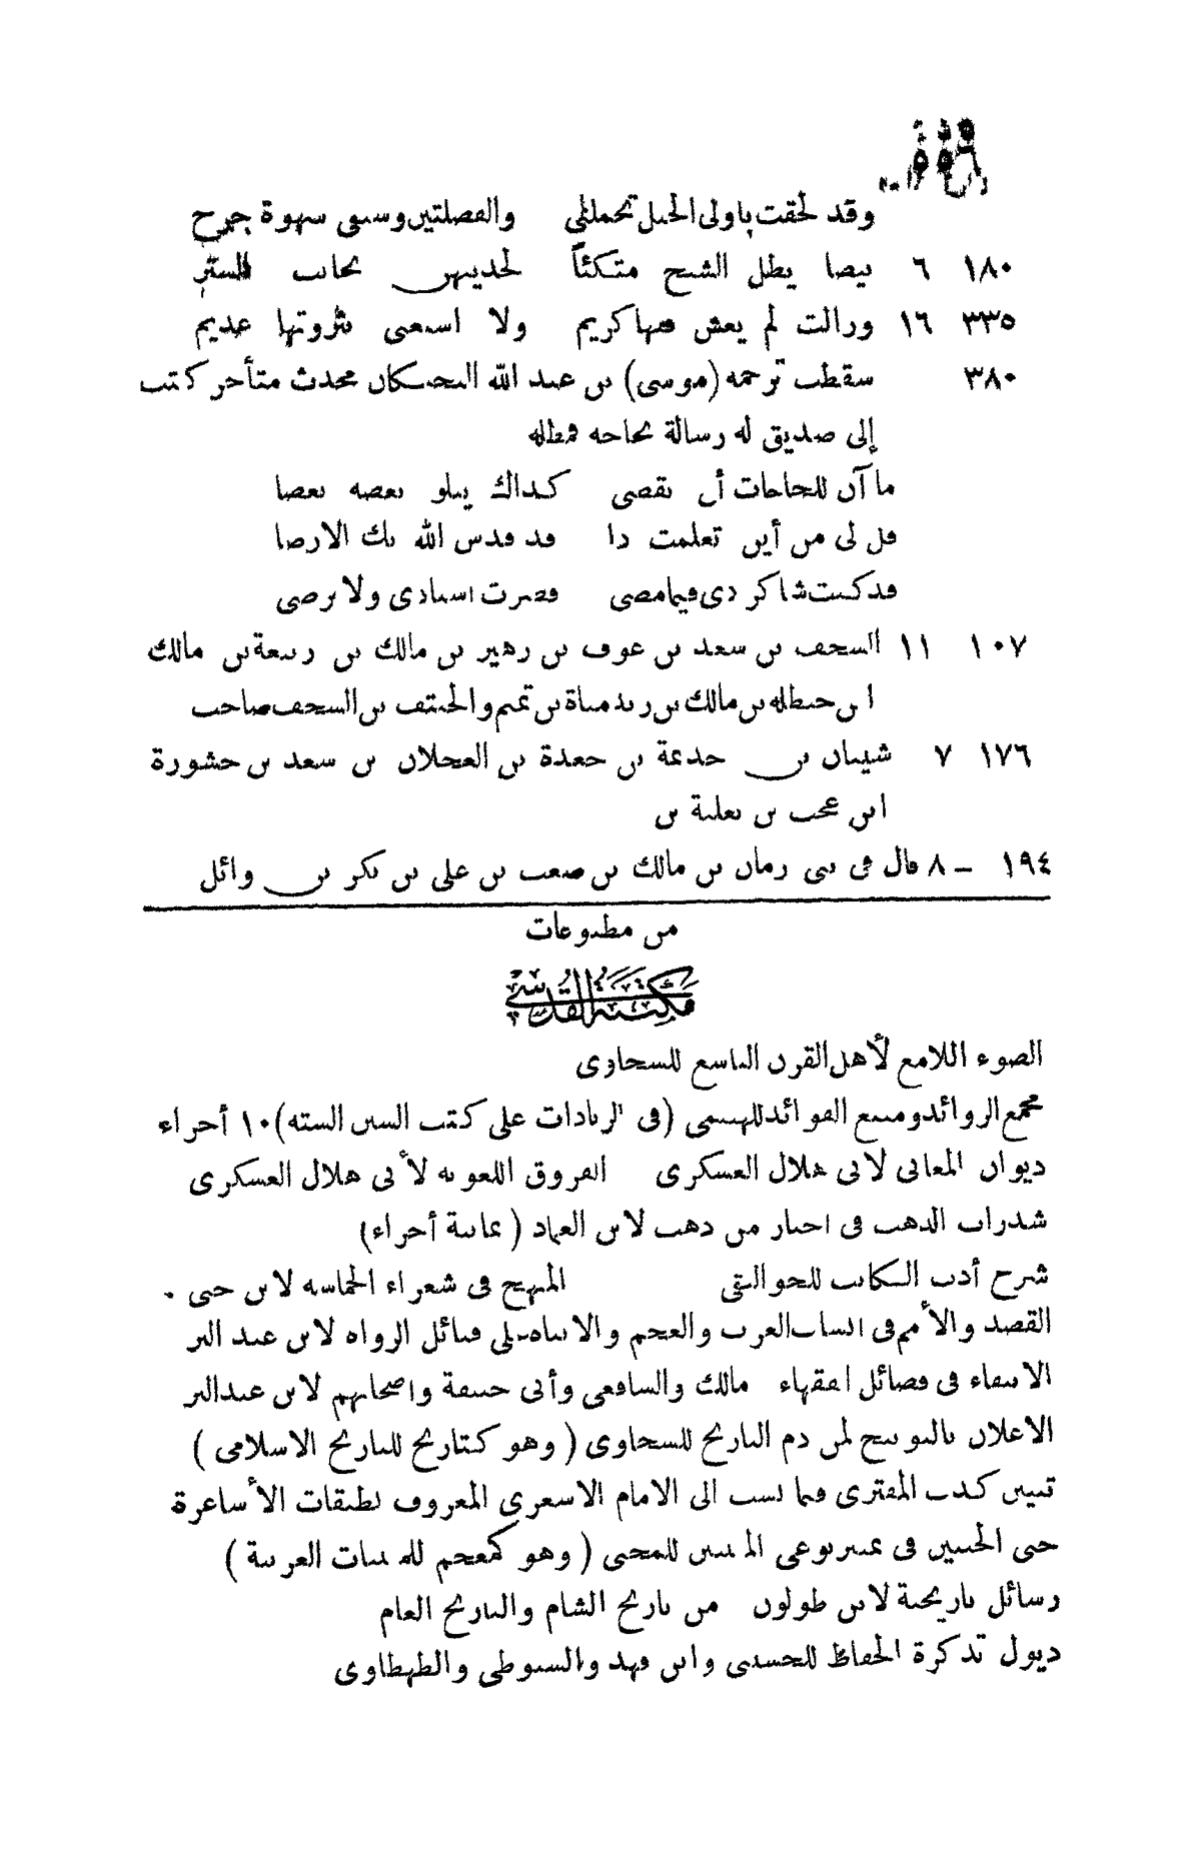 وقد لحقت باولى الخيل تحملني والفضلتين وسيفي سهوة جمح
١٨٠ ٦ بيضا يظل الشيح متكئاً لحديهن بجانب الستر
٣٣٥ ١٦ وزالت لم يعش فيها كريم ولا استغنى بثروتها عديم
٣٨٠ سقطت ترجمة (موسى) بن عبد الله محدث متأخر كتب
إلى صديق له رسالة بحاجة فمطله
ما آن للحاجات أن تقضى كذاك يتلو بعضه بعضا
قل لى من أين تعلمت ذا قد قدس الله بك الارضا
قد كنت شاكر ذى فيما مضى فصرت استادى ولا ترضى
١٠٧ ١١ السجف بن سعد بن عوف بن زهير بن مالك بن ربيعة بن مالك
ابن حنظلة بن مالك بن زيد مناة بن تميم والحنتف بن السجف صاحب
١٧٦ ٧ شيبان بن جذيمة بن جعدة بن العجلان بن سعد بن جشورة
ابن عجب بن ثعلبة بن
١٩٤ – ٨ قال فى بنى زمان بن مالك بن صعب بن على بن بكر بن وائل
من مطبوعات
مكتبة القدسى
الضوء اللامع لأهل القرن التاسع للسخاوى
مجمع الزوائد ومنبع الفوائد للهيثمى (فى الزيادات على كتب السنن الستة) ١٠ أجزاء
ديوان المعانى لابى هلال العسكرى الفروق اللغوية لأبى هلال العسكرى
شذرات الذهب فى اخبار من ذهب لابن العماد (ثمانية أجزاء)
شرح أدب الكاتب للجواليقى المبهج فى شعراء الحماسة لابن جنى .
القصد والأمم فى انساب العرب والعجم والانباه على قبائل الرواه لابن عبد البر
الانتقاء فى فضائل الفقهاء مالك والشافعى وأبى حنيفة واصحابهم لابن عبد البر
الاعلان بالتوبيخ لمن ذم التاريخ للسخاوى (وهو كتاريخ للتاريخ الاسلامى)
تبيين كذب المفترى فيما نسب الى الامام الاشعرى المعروف بطبقات الأشاعرة
جنى الجنتين فى تمييز نوعى المثنيين للمحبى (وهو كمعجم للمثنيات العربية)
رسائل تاريخية لابن طولون من تاريخ الشام والتاريخ العام
ذيول تذكرة الحفاظ للحسينى وابن فهد والسيوطى والطهطاوى